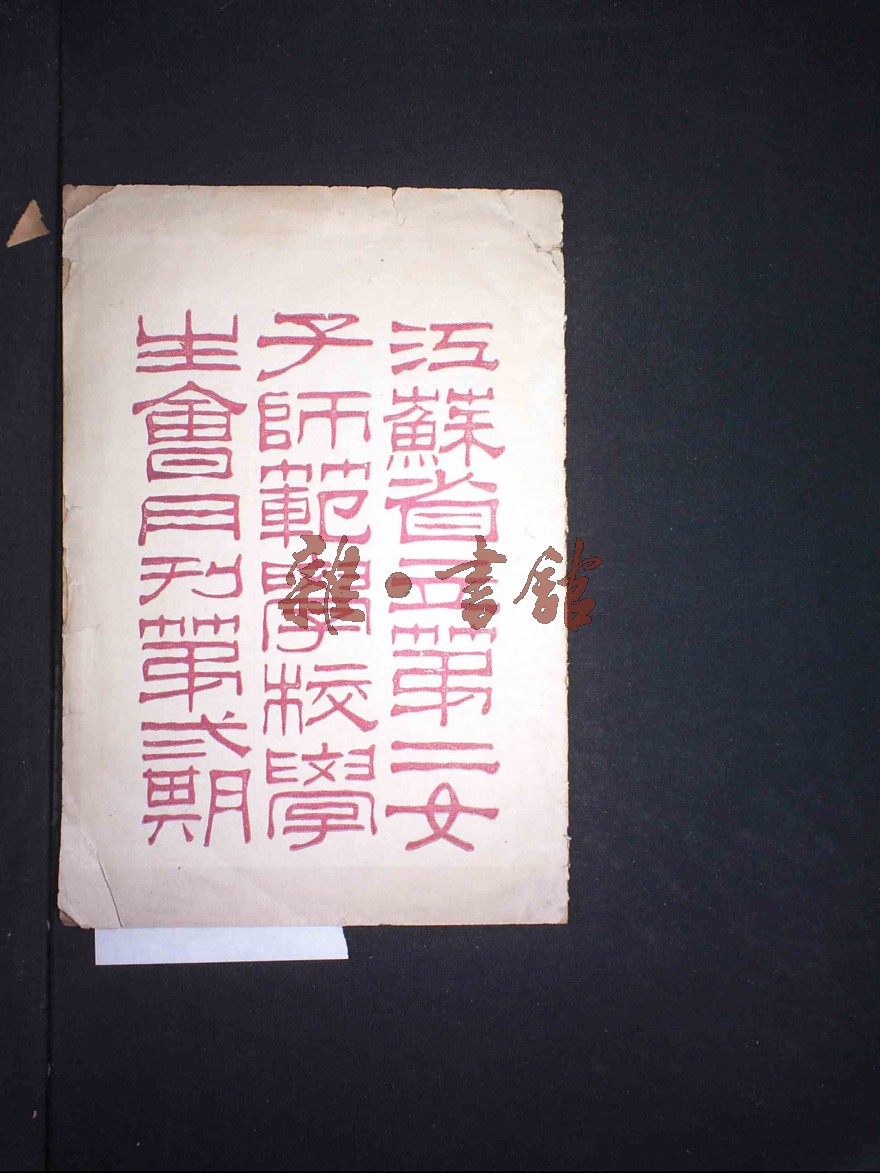 江蘇省立第二女
子師範學校學
生會月刊第弍期
雜·書館